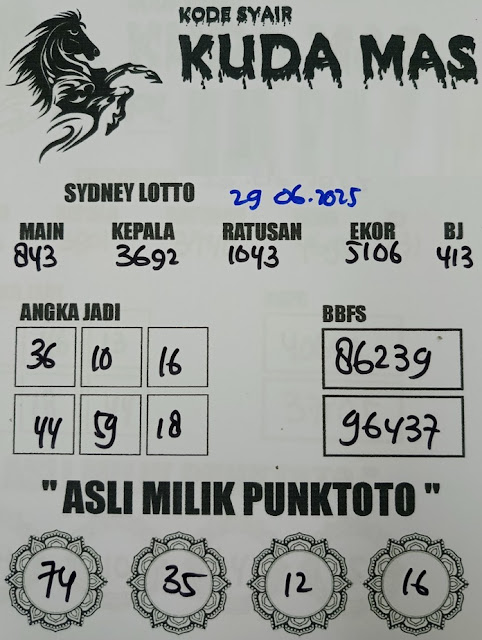 KODE SYAIR
KUDA MAS
SYDNEY LOTTO 29 06.2025
MAIN KEPALA RATUSAN EKOR BJ
843 3692 1043 5106 413
ANGKA JADI BBFS
36 10 16 86239
44 59 18 96437
"ASLI MILIK PUNKTOTO"
74 35 12 16